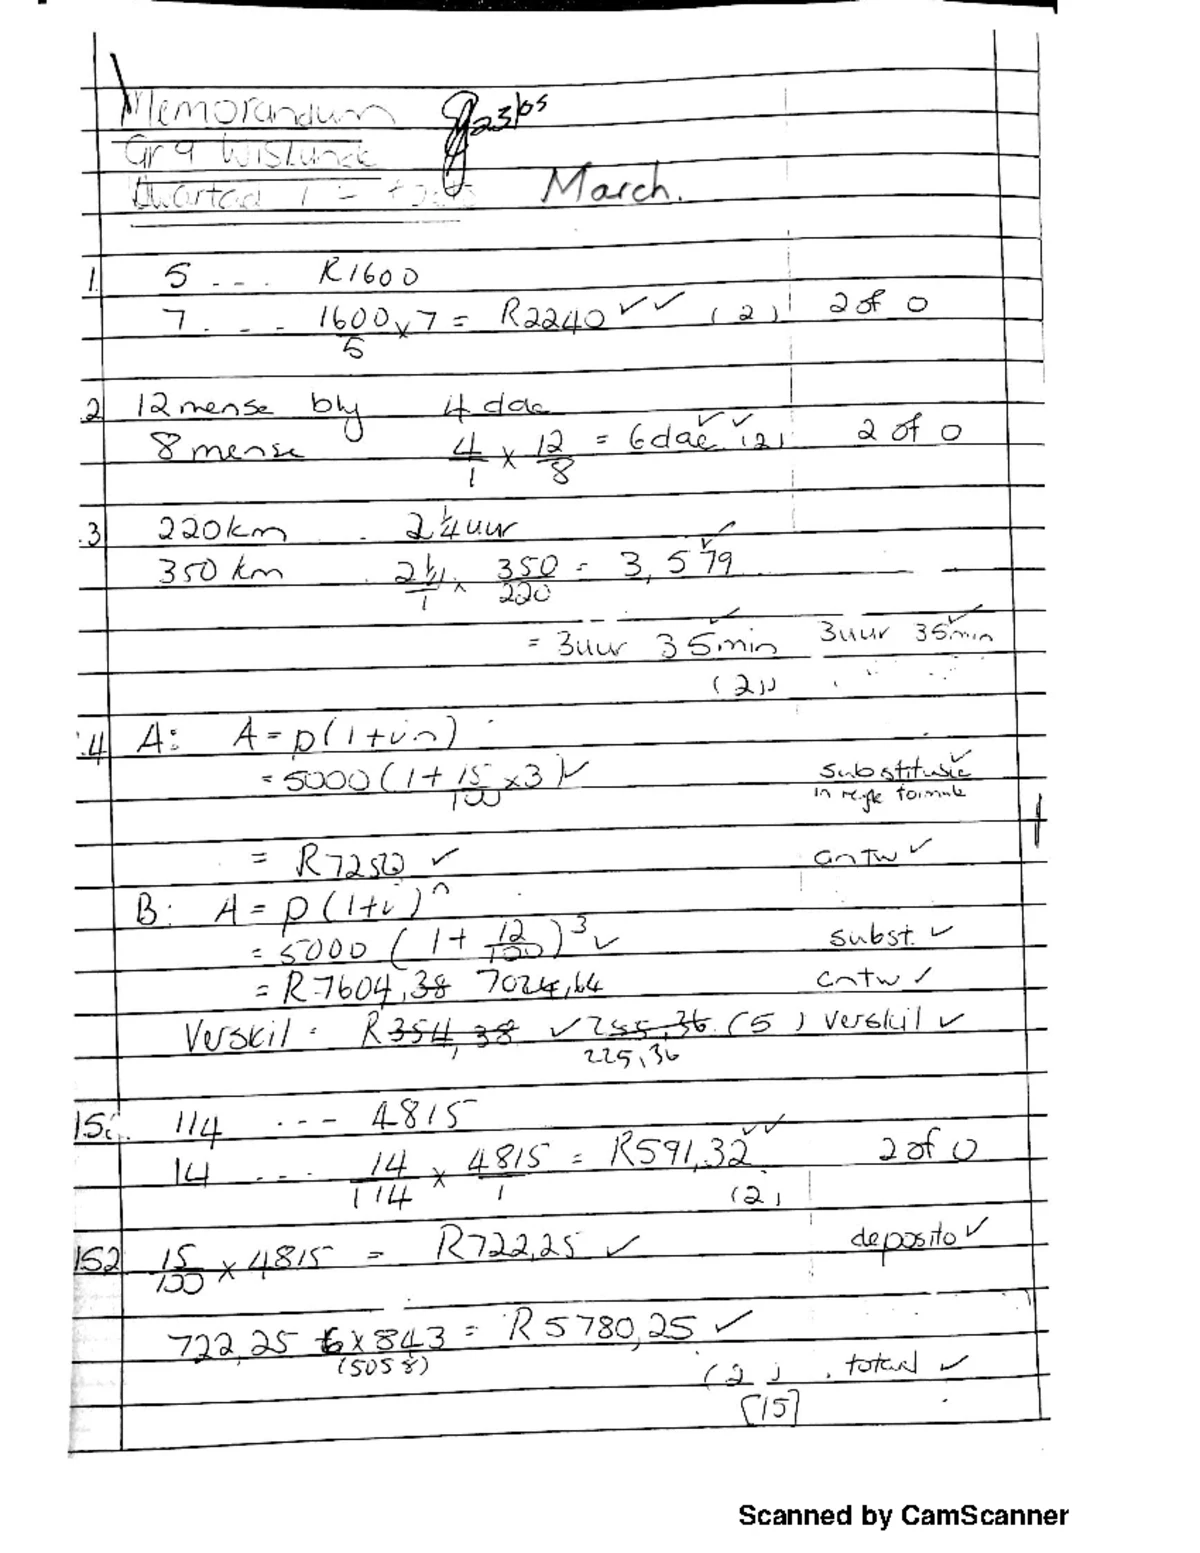 Memorandum
Gr 9 Wiskunde
Kwartaal 1 -
23/05
March.
1. 5 ... R1600
7 ... 1600/5 x 7 = R2240 ✓✓ (2) 2 of 0
2 12 mense bly 4 dae
8 mense 4/1 x 12/8 = 6 dae ✓✓ (2) 2 of 0
.3 220km 2 1/4 uur
350 km 2 1/4 /1 x 350/220 = 3,579 ✓
= 3uur 35min ✓ 3uur 35min ✓
(2)
.4 A: A = p(1+in)
= 5000(1+15/100 x3) ✓ substitusie ✓
in regte formule
= R7250 ✓ antw ✓
B: A = p(1+i)^n
= 5000 (1+ 12/100)^3 ✓ subst. ✓
= R7604,38 7024,64 antw ✓
Verskil = R354,38 ✓ 255,36 (5) verskil ✓
225,36
15. 114 --- 4815
14 --- 14/114 x 4815/1 = R591,32 ✓✓ 2 of 0
(2)
152 15/100 x 4815 = R722,25 ✓ deposito ✓
722,25 + 6 x 843 = R5780,25 ✓
(5058) (2) . totaal ✓
[15]
Scanned by CamScanner